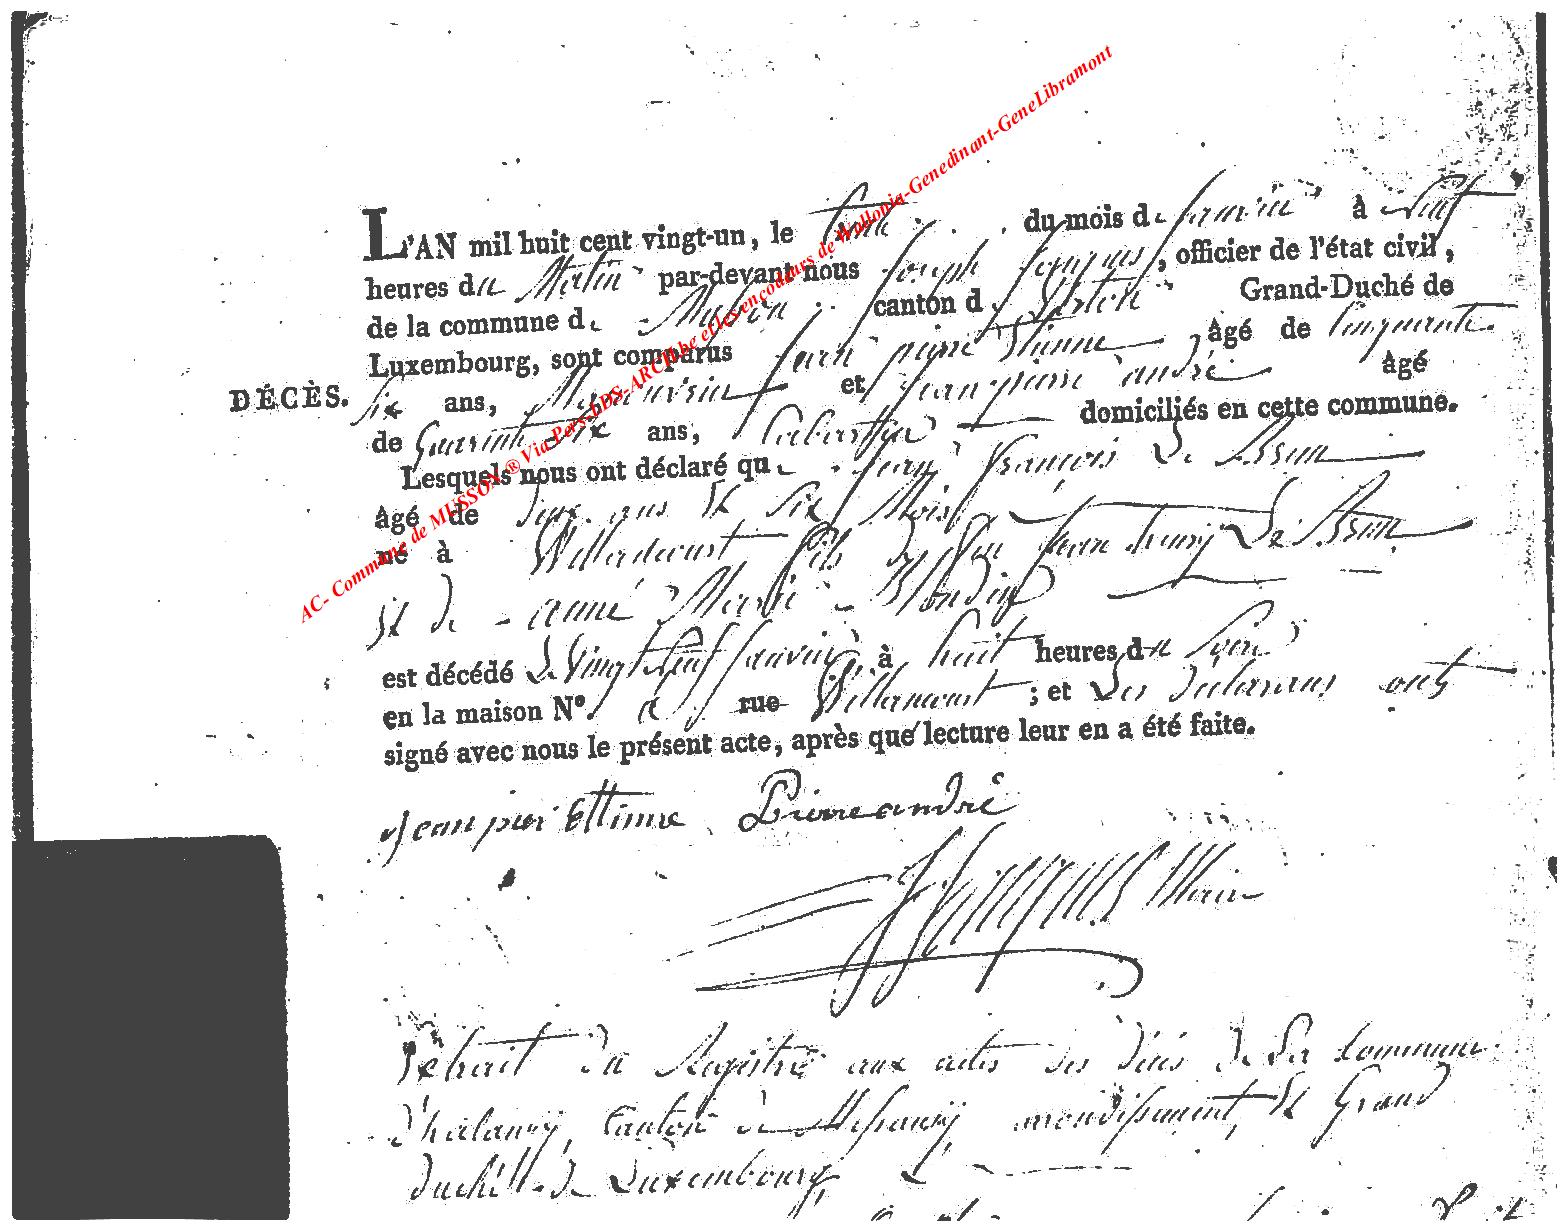 L'AN mil huit cent vingt-un, le trente du mois de janvier à neuf
heures du Matin par-devant nous Joseph Jacques, officier de l'état civil,
de la commune de Musson canton de Virton Grand-Duché de
Luxembourg, sont comparus Jean pierre Etienne âgé de Cinquante
DÉCÈS. Six ans, Manouvrier et Jean pierre andré âgé
de Quarante Six ans, domiciliés en cette commune.
Lesquels nous ont déclaré que Jean françois De
âgé de deux ans et six Mois
né à Willancourt fils de feu Jean henry De
et de anne Marie Blondin
est décédé Le Vingt neuf janvier à huit heures du Soir
en la maison N° a rue Willancourt ; et Les declarans ont
signé avec nous le présent acte, après que lecture leur en a été faite.
Jean pier Ettienne Pierre andré
JJacques Maire
Extrait du Registre aux actes des décès de La Commune
d'halanzy, Canton de Messancy, arrondissement, et Grand
duché de Luxembourg,
AC- Commune de MUSSON ® Via Pers-LDS-ARCH.be et les encodeurs de Wallonia-Genedinant-GeneLibramont